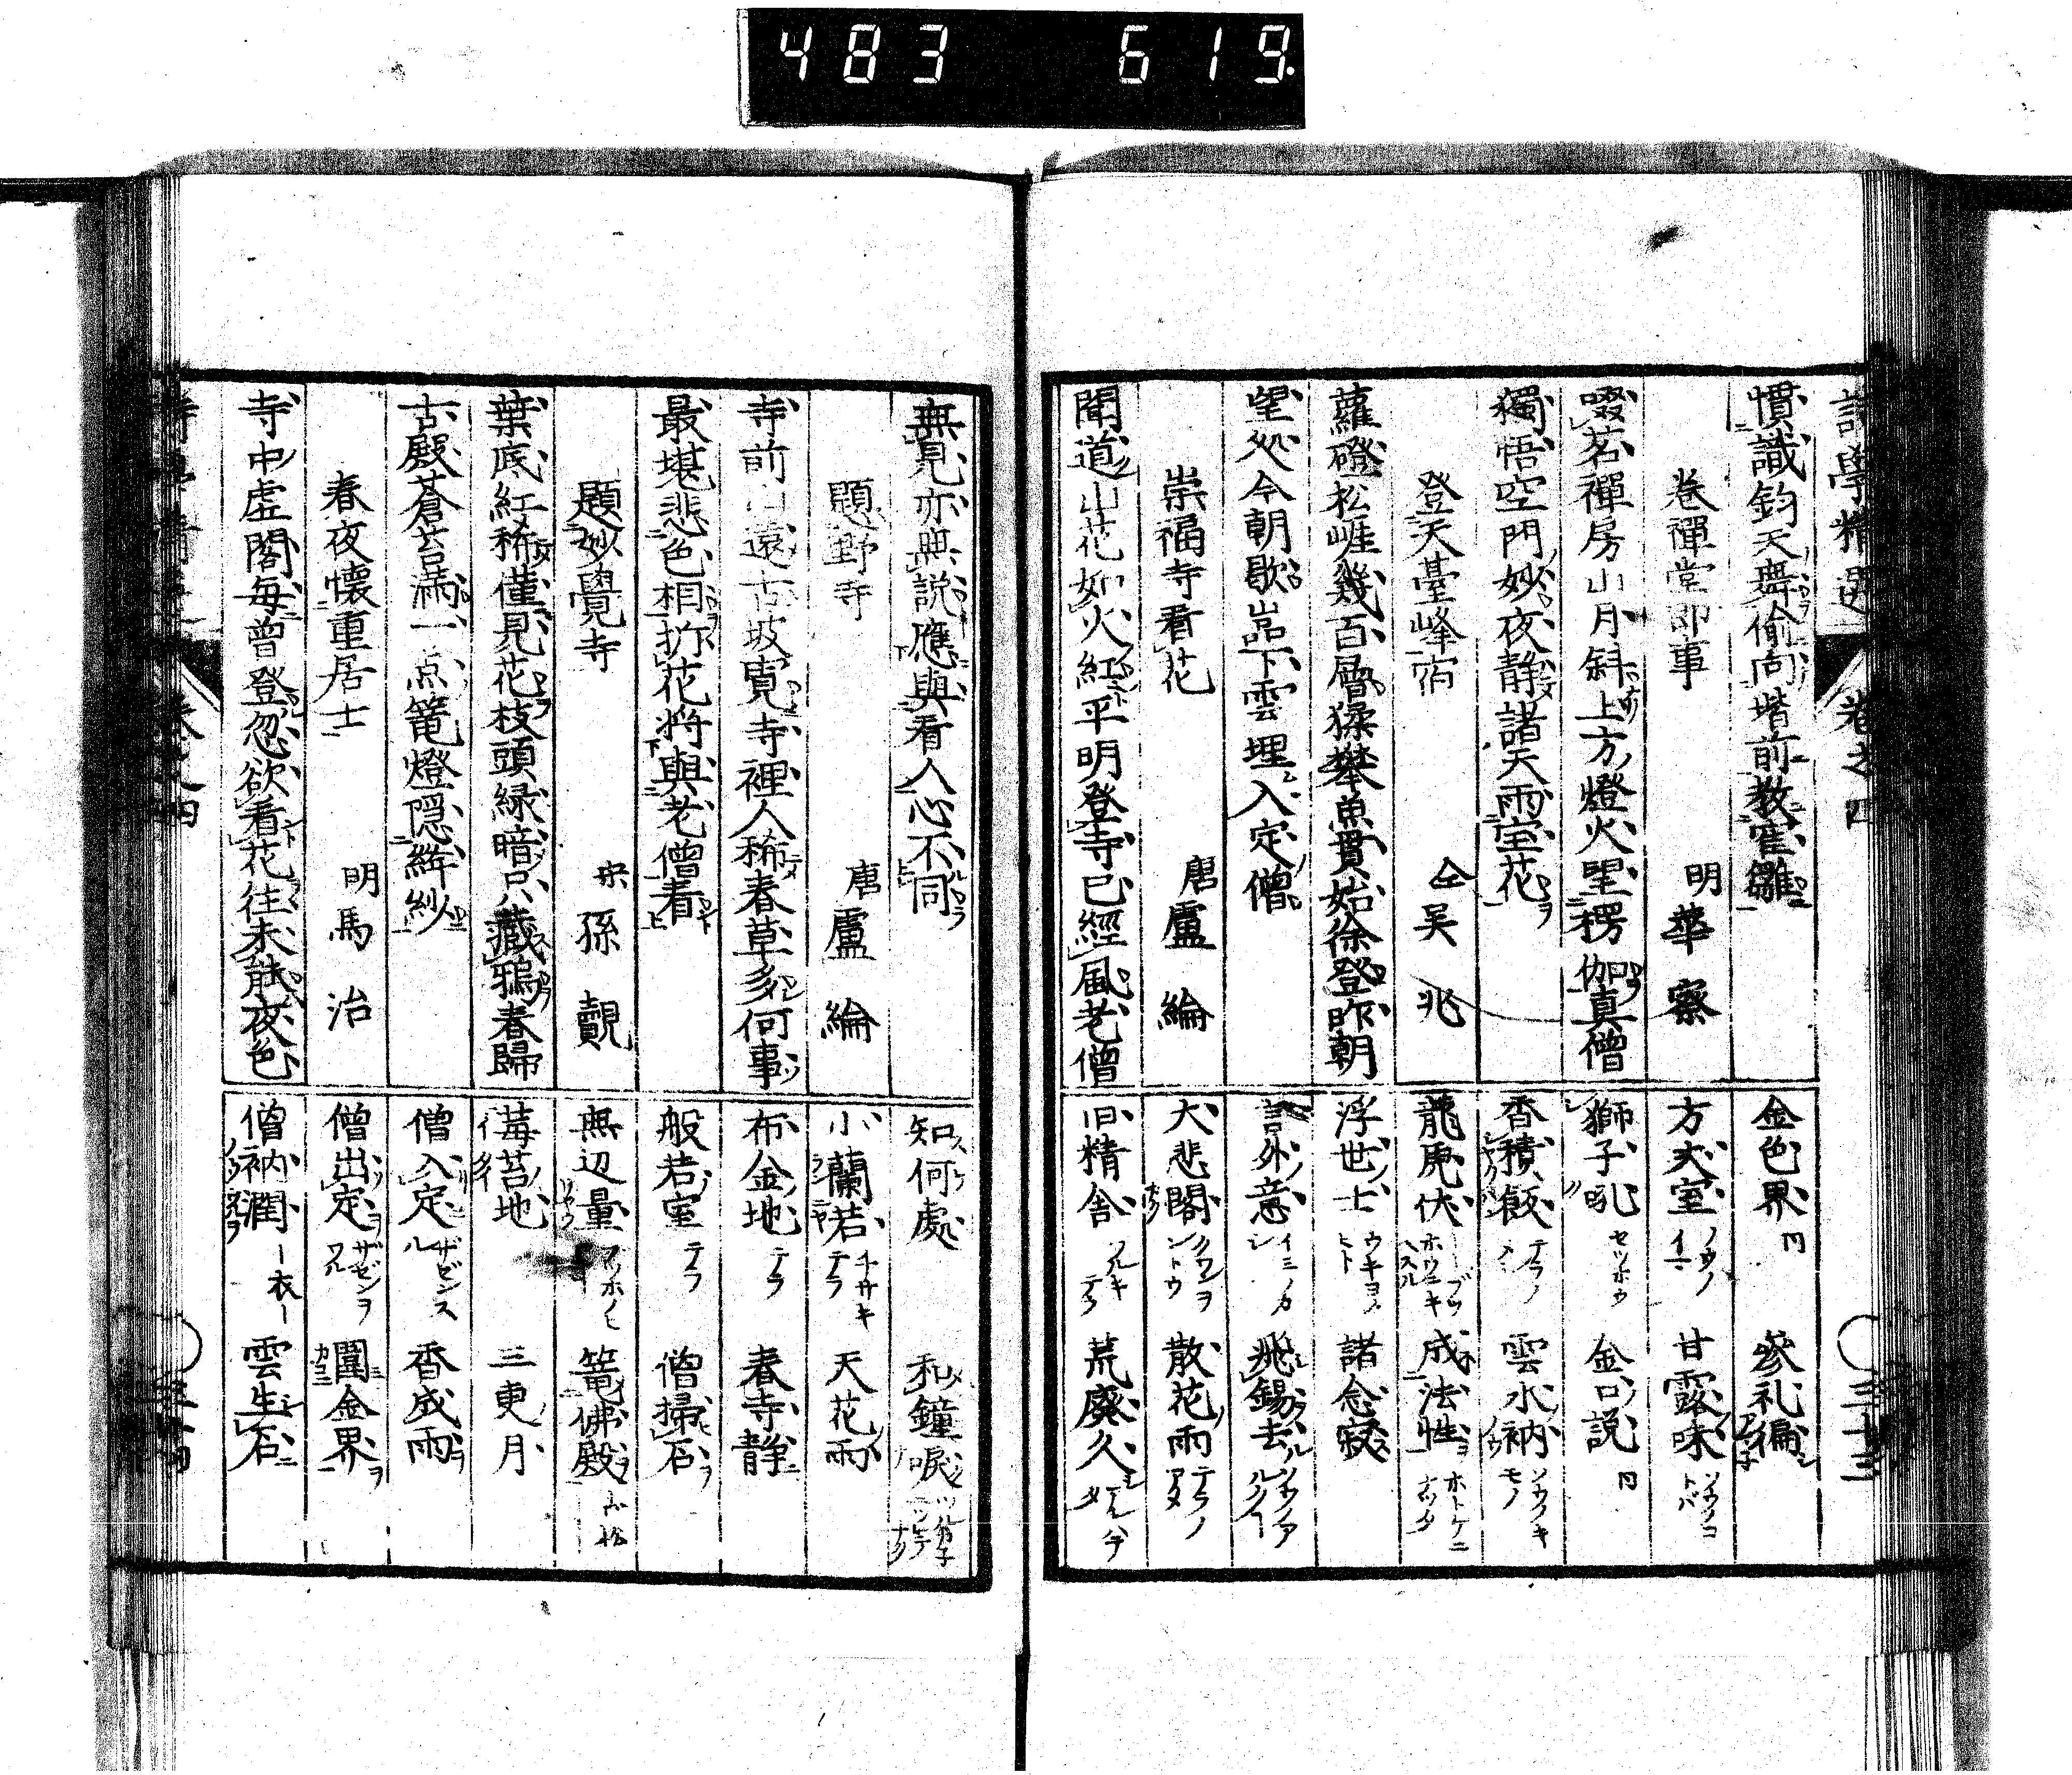 483 619.
詩學精選 卷之四
慣識鈞天舞偷向堦前教雀雛
巻禪堂即事 明 華察
啜茗禪房山月斜上方燈火望楞伽真僧
獨悟空門妙夜静諸天雨宝花
登天臺峰宿 仝 吴兆
蘿磴松崕幾百層猱攀魚貫始徐登昨朝
望处今朝歇嵓下雲埋入定僧
崇福寺看花 唐 盧綸
聞道山花如火紅平明登寺已經風老僧
金色界 参礼徧
方丈室 甘露味
獅子吼 セツホウ 金口説
香積飯 テラノ 雲水衲
龍虎伏 成法性
浮世士 諸念寂
言外意 飛錫去
大悲閣 散花雨
旧精舎 フルキテラ 荒廢久
三十三
無見亦無説應與看人心不同
題野寺 唐 盧綸
寺前山遠古坡寛寺裡人稀春草多何事
最堪悲色相折花將與老僧看
題妙覺寺 宋 孫覿
葉底紅稀僅見花枝頭緑暗只藏鴉春歸
古殿蒼苔滿一点篭燈隠絳紗
春夜懐重居士 明 馬治
寺中虚閣毎曾登忽欲看花往未能夜色
知何處 和鐘唳
小蘭若 チサキテラ 天花雨
布金地 テラ 春寺静
般若室 テラ 僧掃石
無辺量 篭佛殿
莓苔地 三更月
僧入定 ザゼンスル 香成雨
僧出定 ザゼンヲ 圍金界
僧衲潤 ー衣ー 雲生石
卷之四